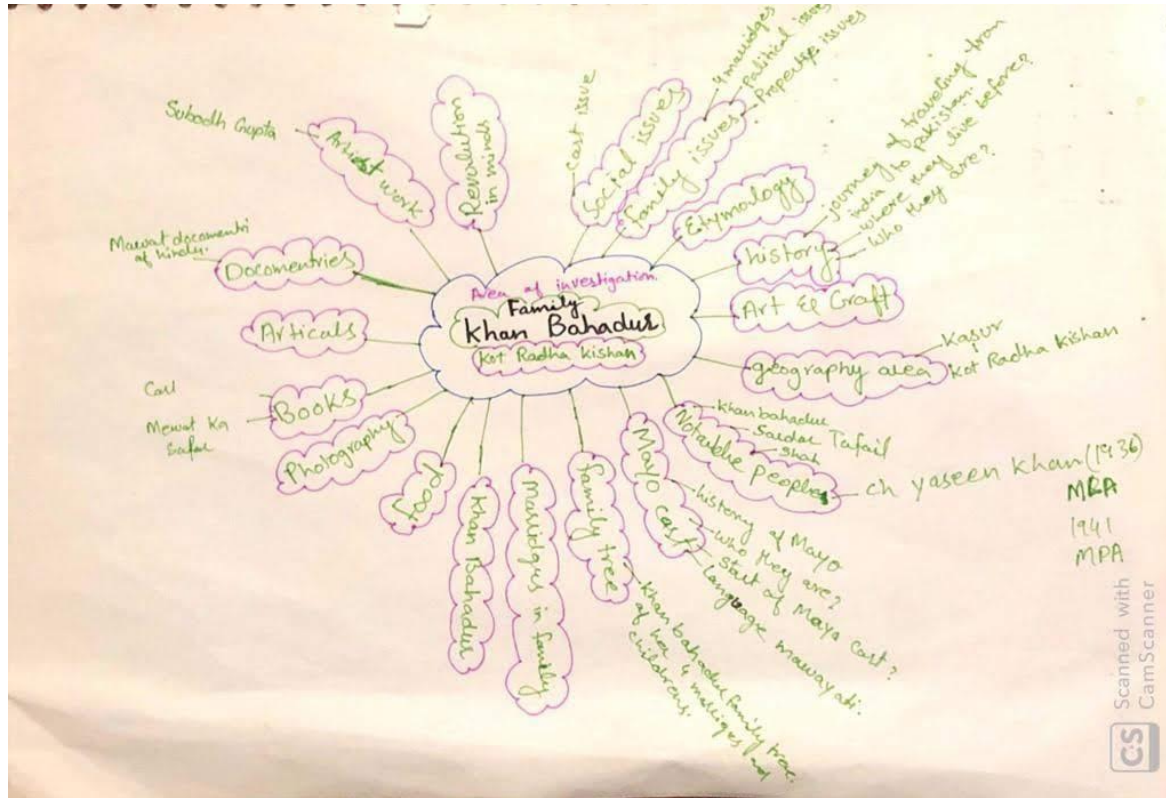 Area of investigation.
Family
Khan Bahadur
Kot Radha kishan
Revolution
in minds
Social issues
cast issue
family issues
4 marridges
Political issues
Propertys issues
Etymology
history
journey of traveling from
india to pakistan.
where they live before?
who they are?
Art & Craft
geography area
Kasur
Kot Radha kishan
Notable people
Khan bahadur
Sardar Tafail
Shah
ch yaseen khan (1936)
MLA
1941
MPA
Mayo cast
history of Mayo
who they are?
start of Mayo cast?
Language mawayati.
family tree
Khan bahadur family tree.
of her 4 and
childrens.
Marridgus in family
Khan Bahadur
food
Photography
Books
Mewat Ka
Safar
Articals
Docomentries
Mawat documentri
of hindu.
Artist work
Subodh Gupta
Scanned with
CamScanner
CS